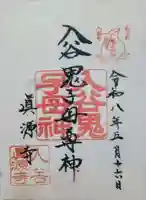 令和八年五月十六日
入谷鬼子母尊神
入谷鬼
子母神
眞源寺